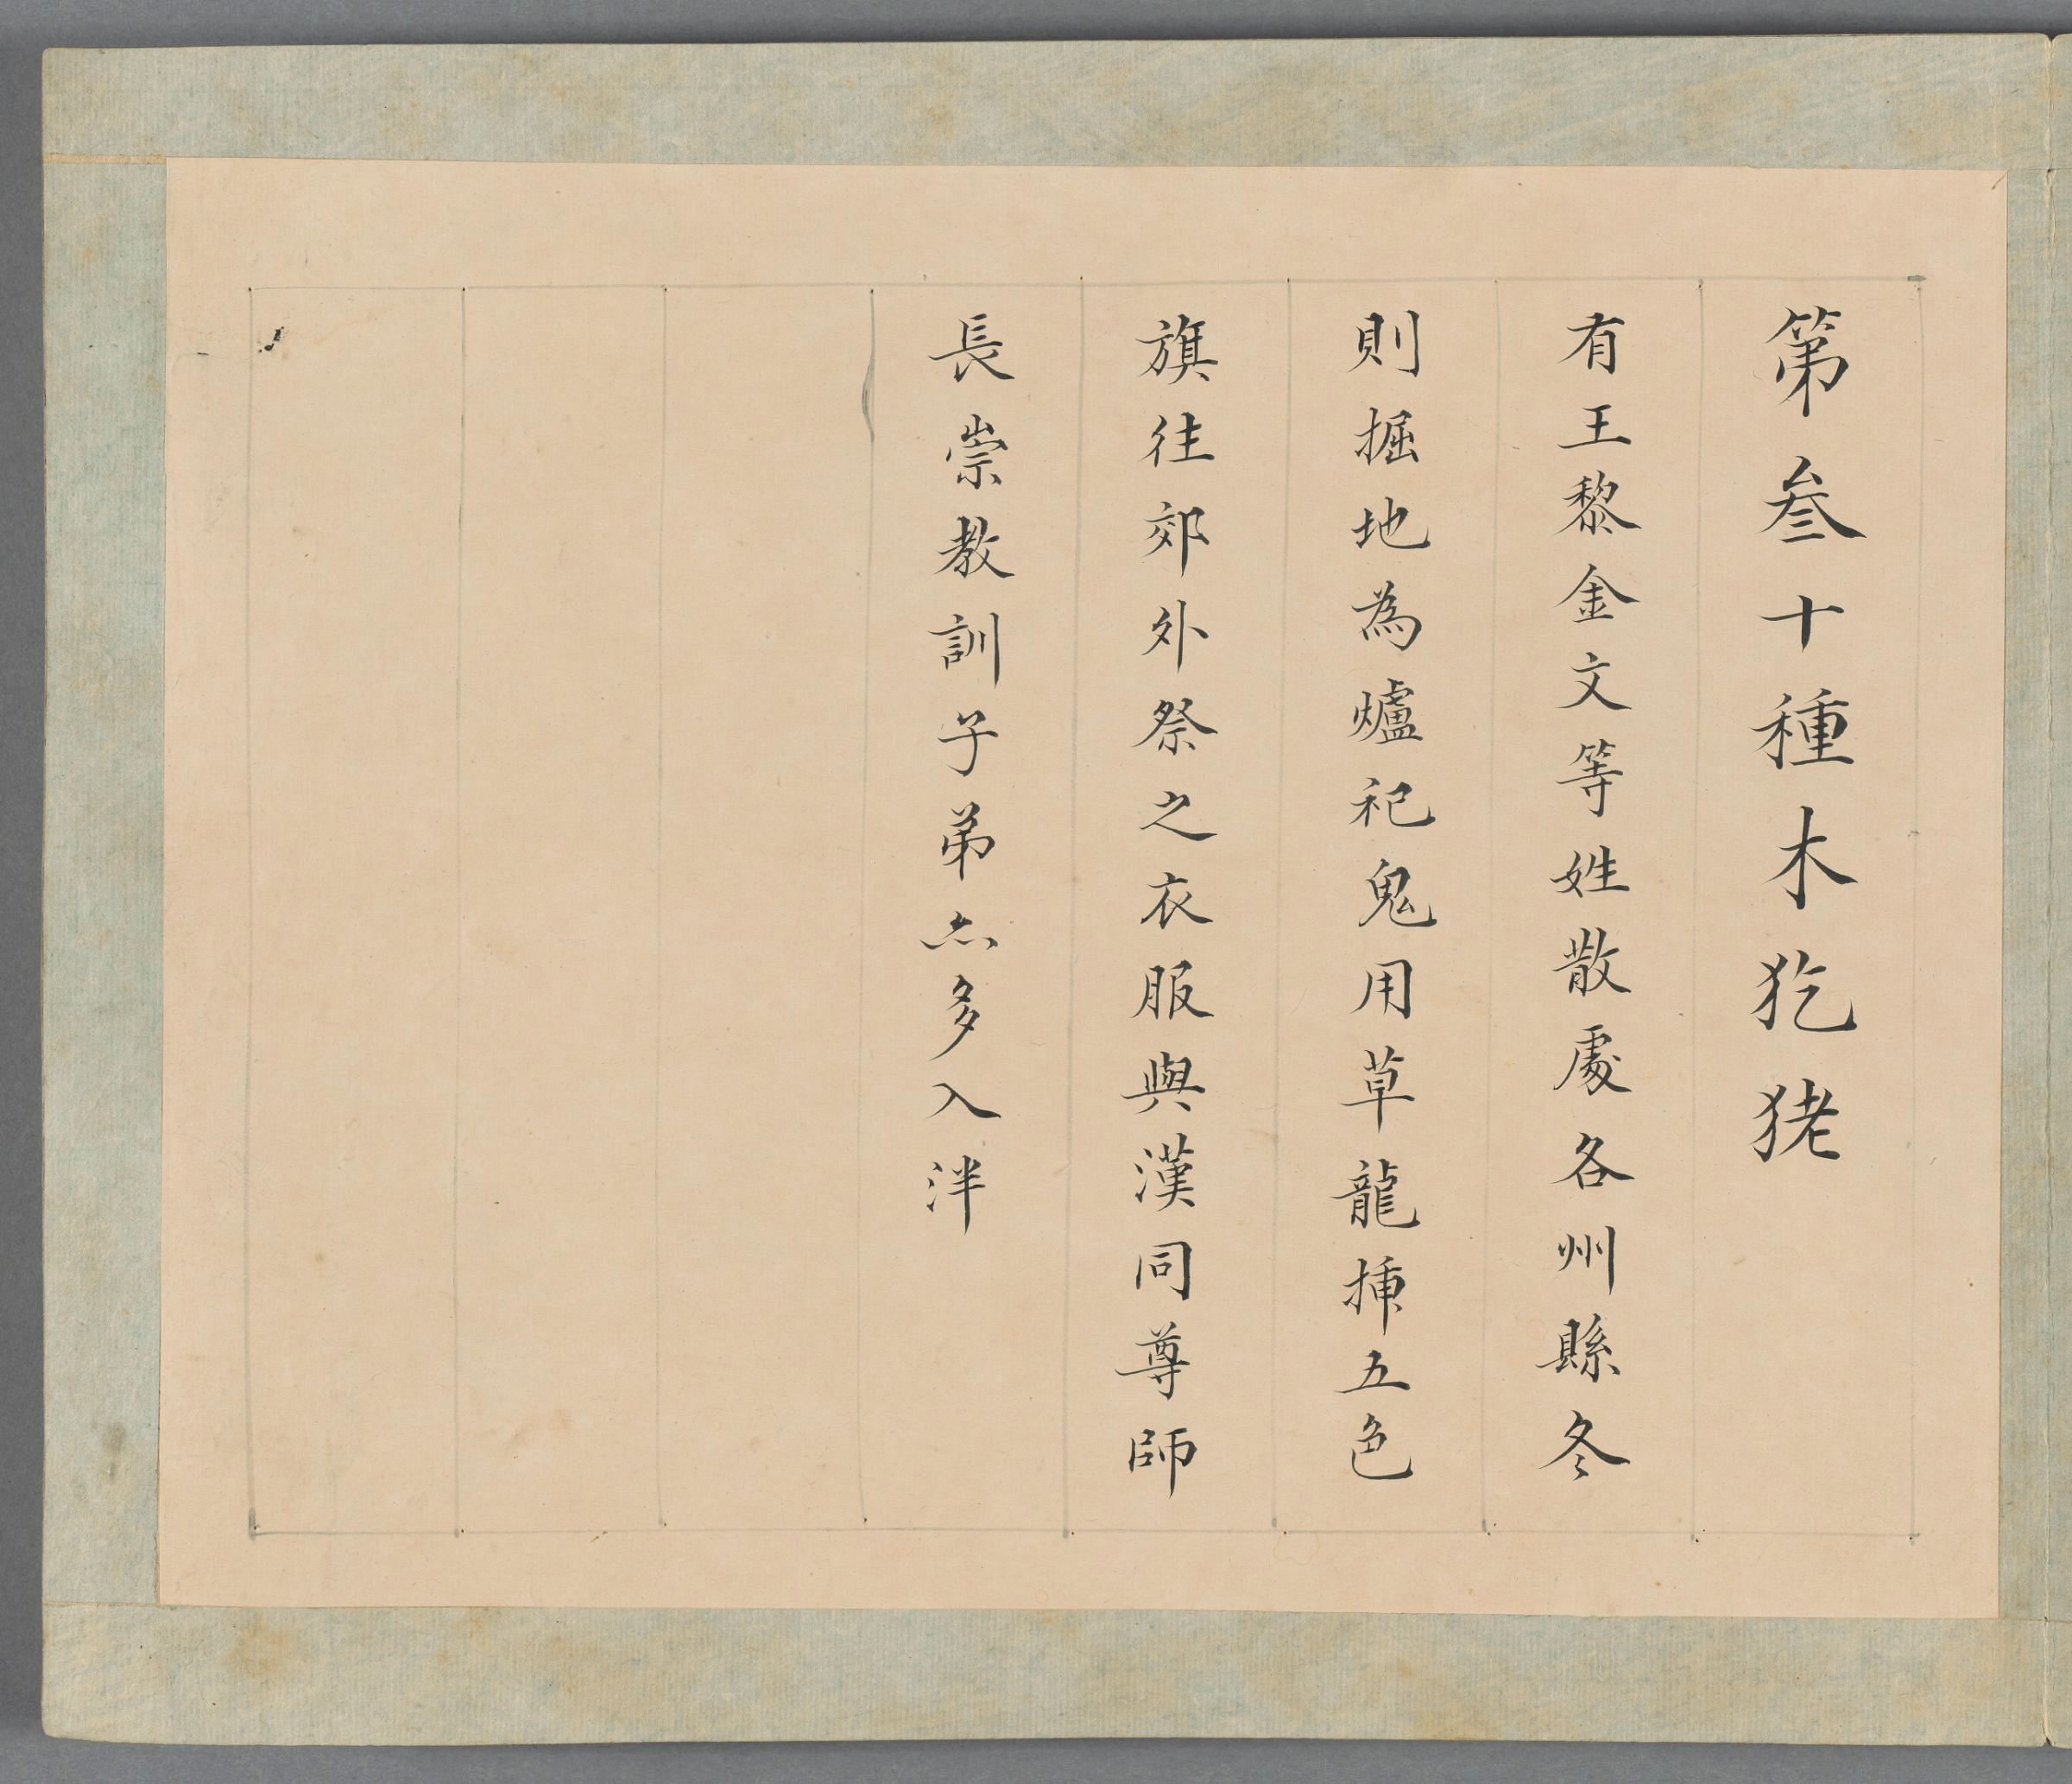 第叁十種木犵狫
有王黎金文等姓散處各州縣冬
則掘地為爐祀鬼用草龍揷五色
旗往郊外祭之衣服與漢同尊師
長崇教訓子弟亦多入泮